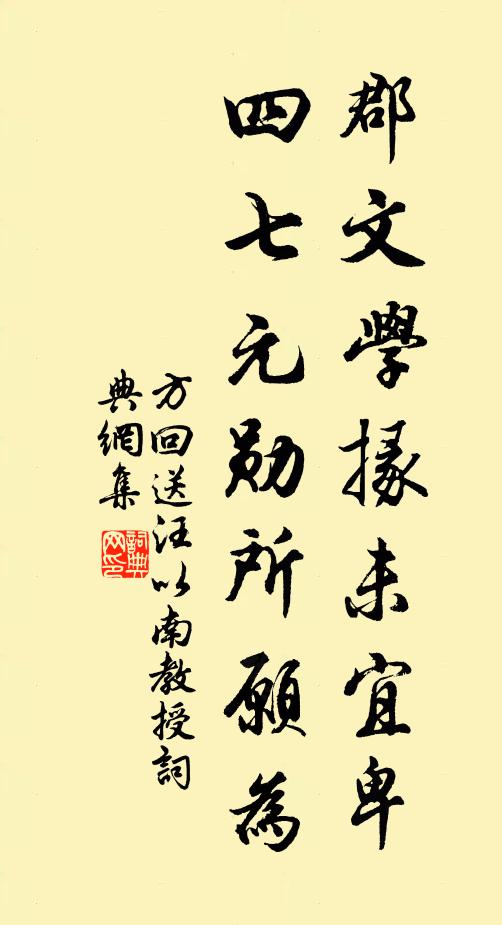 郡文學掾未宜卑
四七元勋所願為
方回送汪以南教授詞
典網集
詞典
网印